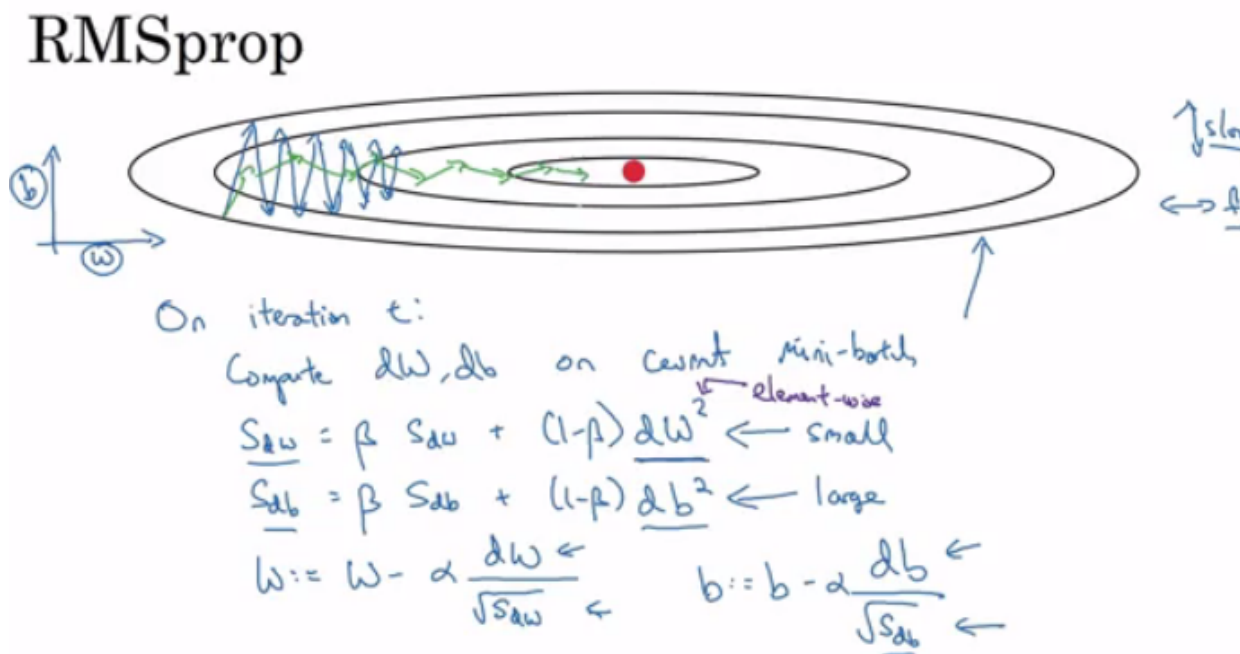 RMSprop
slo
b
w
On iteration t:
Compute dW, db on current mini-batch
element-wise
S_dw = β S_dw + (1-β) dW² ← small
S_db = β S_db + (1-β) db² ← large
W := W - α dW / √S_dw ← b := b - α db / √S_db ←